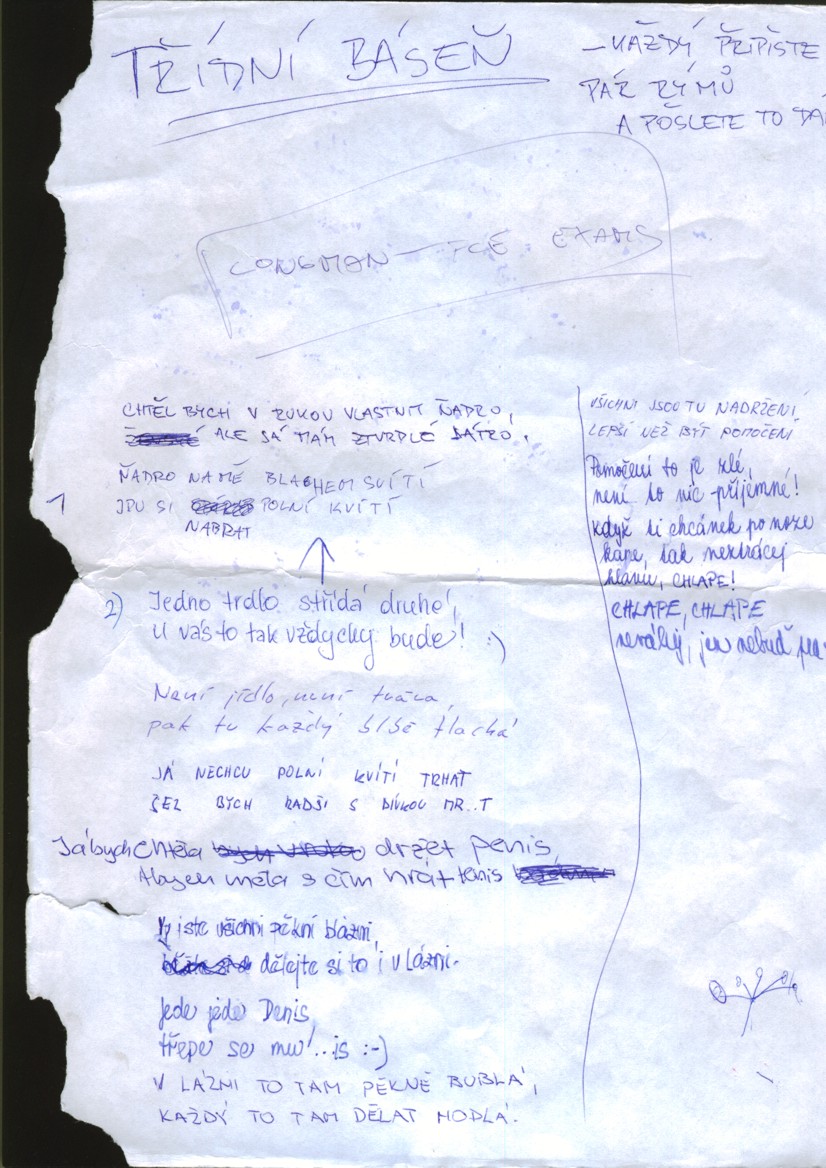 TŘÍDNÍ BÁSEŇ
– KAŽDÝ PŘIPIŠTE
PÁR RÝMŮ
A POŠLETE TO DÁ
LONGMAN – FCE EXAMS
CHTĚL BYCH V RUKOU VLASTNIT ŇADRO,
ALE SÁ MÁM ZTVRDLÉ SÁDRO.
ŇADRO NA MĚ BLAHEM SVÍTÍ
1 JDU SI POLNÍ KVÍTÍ
NABRAT
2) Jedno trdlo střídá druhé,
U vás to tak vždycky bude! :)
Není jídlo, není
pak tu každý blbě tlachá
JÁ NECHCU POLNÍ KVÍTÍ TRHAT
ŠEL BYCH RADŠI S DÍVKOU MR..T
Já bych chtěla držet penis,
Abych měla s čím hrát tenis
Vy jste všichni pěkní blázni,
dělejte si to i v lázni.
Jede jede Denis,
třepe se mu !...is :-)
V LÁZNI TO TAM PĚKNĚ BUBLÁ,
KAŽDÝ TO TAM DĚLAT HODLÁ.
VŠICHNI JSOU TU NADRŽENÍ,
LEPŠÍ NEŽ BÝT POMOČENÍ
Pomočení to je zlé,
není to nic příjemné!
Když ti chcánek po noze
kape, tak neztrácej
hlavu, CHLAPE!
CHLAPE, CHLAPE
neváhej, jen nebuď